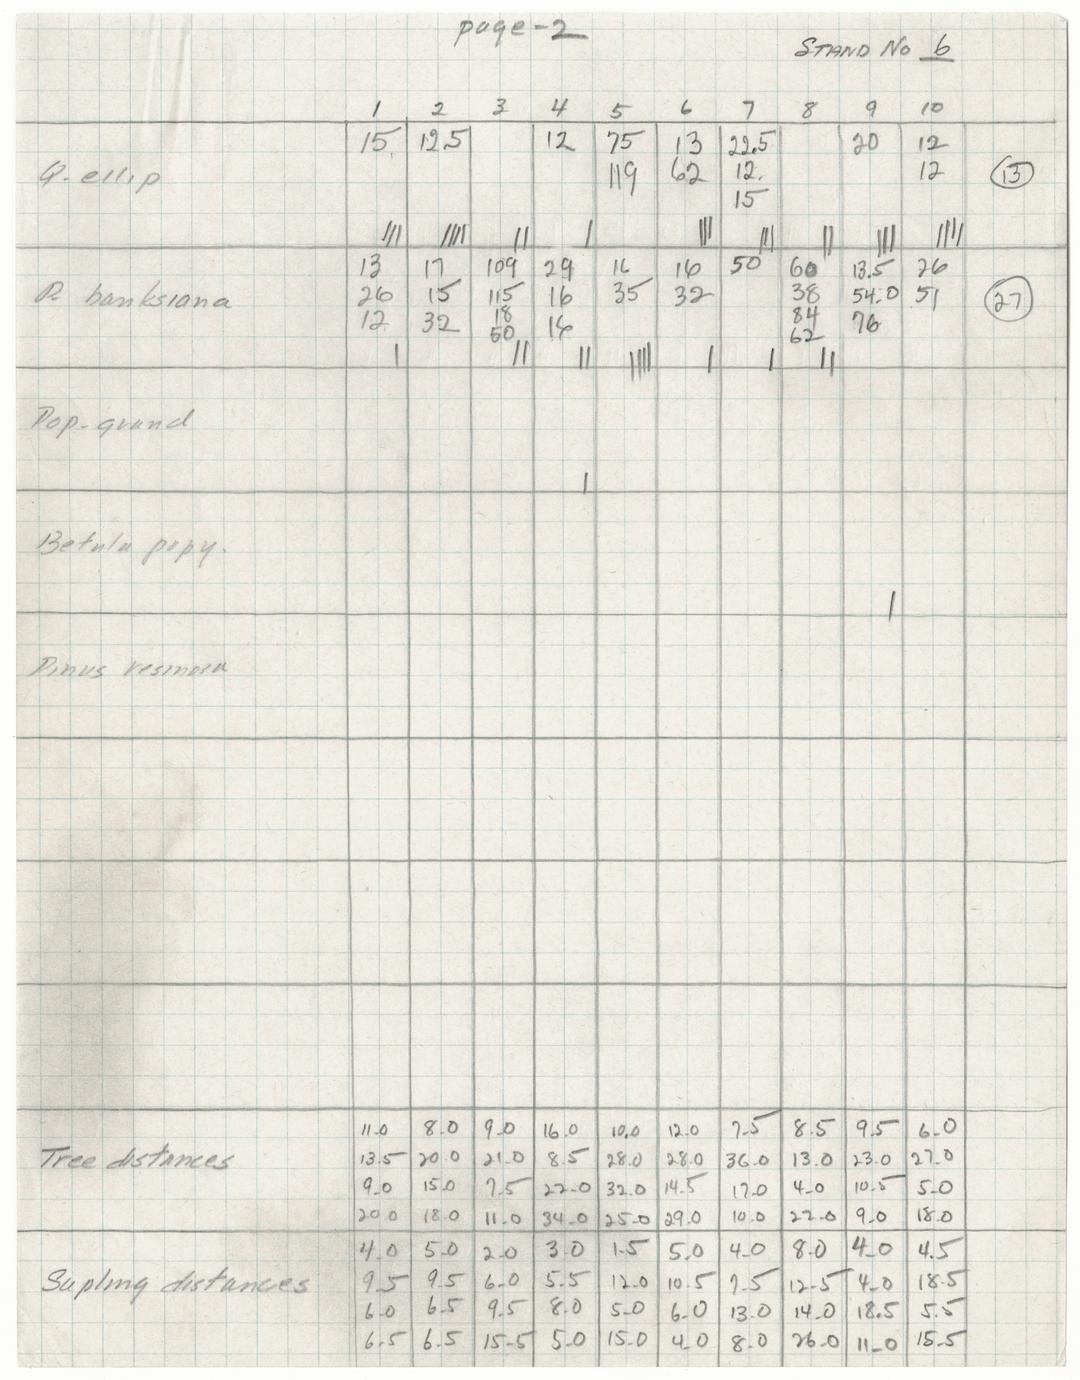 page-2
STAND No 6
1 2 3 4 5 6 7 8 9 10
15 12.5 12 75 13 22.5 20 12
Q. ellip 119 62 12. 12 13
15
||| |||| || | ||| ||| || ||| ||||
13 17 109 29 16 16 50 60 13.5 26
P. banksiana 26 15 115 16 35 32 38 54.0 51 27
12 32 18 16 84 76
50 62
| || || |||| | | ||
Pop-grand
|
Betula papy.
|
Pinus resinosa
11.0 8.0 9.0 16.0 10.0 12.0 7.5 8.5 9.5 6.0
Tree distances 13.5 20.0 21.0 8.5 28.0 28.0 36.0 13.0 23.0 27.0
9.0 15.0 7.5 22.0 32.0 14.5 17.0 4.0 10.5 5.0
20.0 18.0 11.0 34.0 25.0 29.0 10.0 22.0 9.0 18.0
4.0 5.0 2.0 3.0 1.5 5.0 4.0 8.0 4.0 4.5
Sapling distances 9.5 9.5 6.0 5.5 12.0 10.5 7.5 12.5 4.0 18.5
6.0 6.5 9.5 8.0 5.0 6.0 13.0 14.0 18.5 5.5
6.5 6.5 15.5 5.0 15.0 4.0 8.0 26.0 11.0 15.5